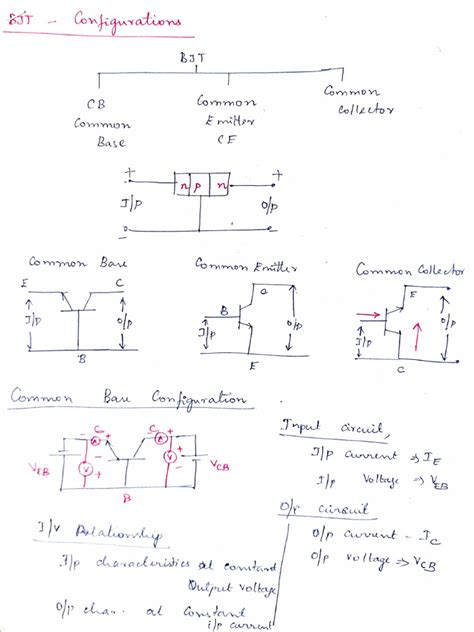 BJT - Configurations
BJT
CB
Common
Base
Common
Emitter
CE
Common
Collector
+ +
n p n
I/p O/p
- -
Common Base
E C
I/p O/p
B
Common Emitter
C
B
I/p O/p
E
Common Collector
E
I/p O/p
C
Common Base Configuration
- C + C +
A A
+ - - +
V V
VEB VCB
B
Input circuit,
I/p current → IE
I/p Voltage → VEB
O/p circuit
O/p current - IC
O/p voltage → VCB
I/V Relationship
I/p characteristics at constant
Output voltage
O/p char. at constant
i/p current